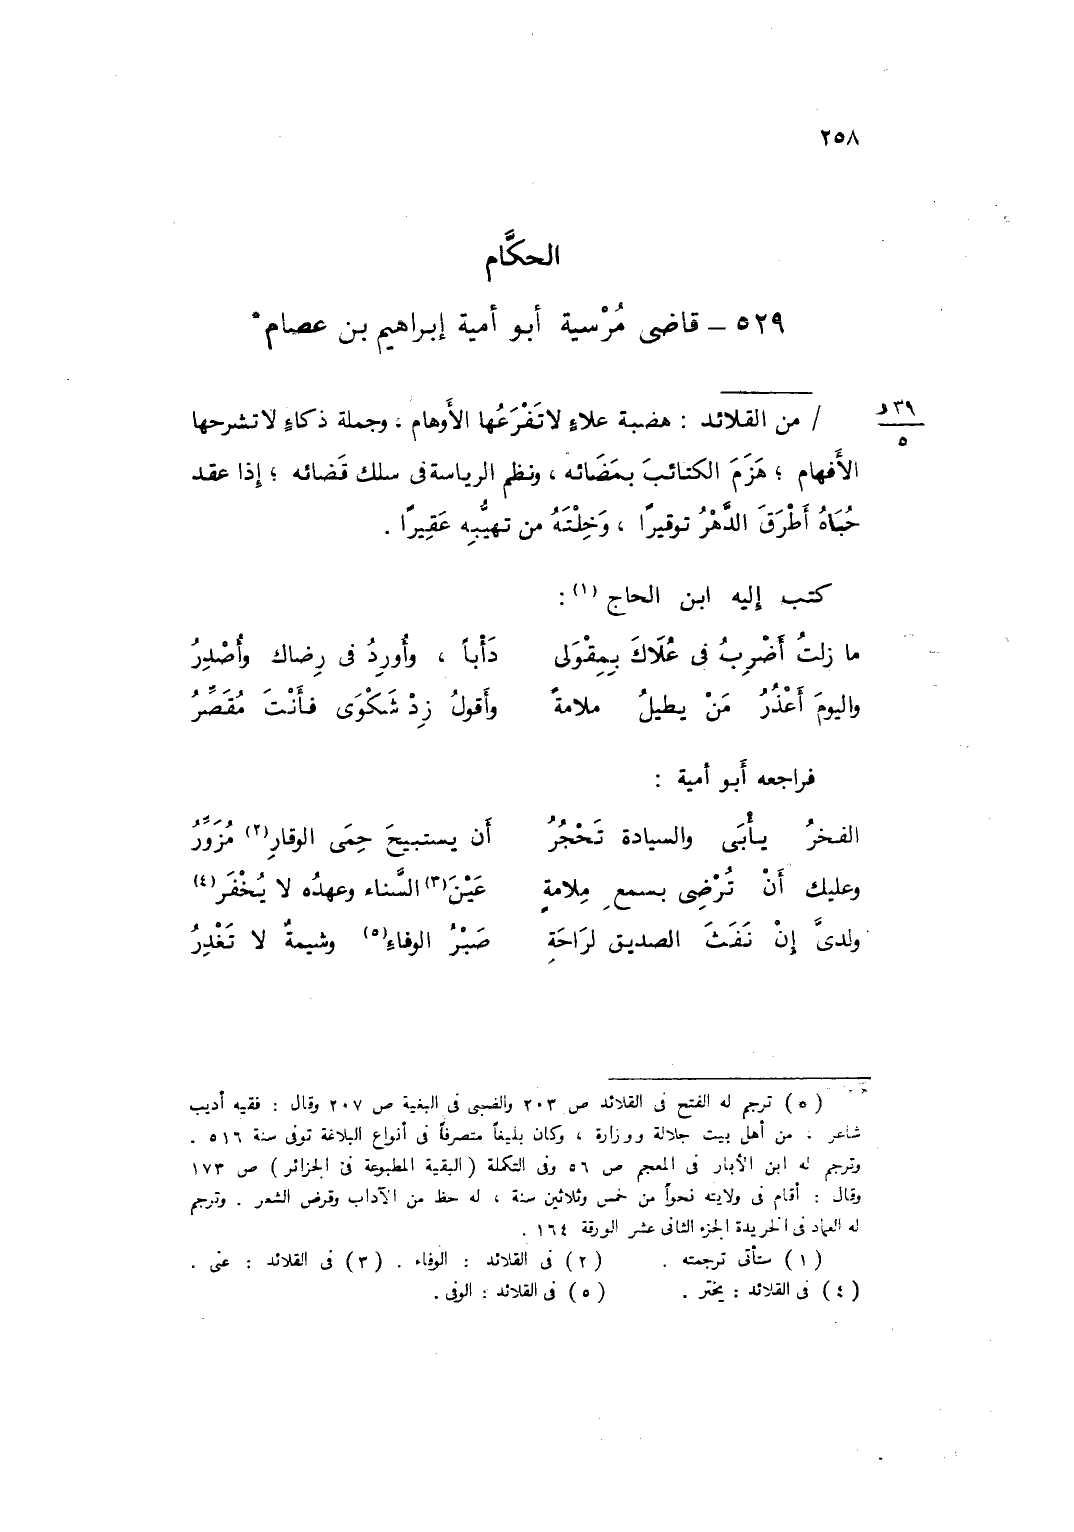 ٢٥٨
الحكَّام
٥٢٩ – قاضى مُرْسية أبو أمية إبراهيم بن عصام*
٣٩ و
٥
/ من القلائد : هضبة علاءٍ لا تَفْرَعُها الأَوهام ، وجملة ذكاءٍ لا تشرحها
الأَفهام ؛ هَزَمَ الكتائبَ بمَضَائه ، ونظم الرياسة فى سلك قَضائه ؛ إذا عقد
حُبَاهُ أَطْرَقَ الدَّهْرُ توقيرًا ، وَخِلْتَهُ من تهيُّبِه عَقِيرًا .
كتب إليه ابن الحاج (١) :
ما زلتُ أَضْرِبُ فى عُلَاكَ بِمِقْوَلى دَأْباً ، وأُورِدُ فى رِضاك وأُصْدِرُ
واليومَ أَعْذُرُ مَنْ يطيلُ ملامةً وأَقولُ زِدْ شَكْوَى فأَنْتَ مُقَصِّرُ
فراجعه أَبو أمية :
الفخرُ يأْبَى والسيادة تَحْجُرُ أَن يستبيحَ حِمَى الوقارِ(٢) مُزَوِّرُ
وعليك أَنْ تُرْضِى بسمعِ مِلامةٍ عَيْنَ(٣) السَّناء وعهدُه لا يُخْفَر(٤)
ولدىَّ إِنْ نَفَثَ الصديق لرَاحَةِ صَبْرُ الوفاءِ(٥) وشيمةٌ لا تَغْدِرُ
(*) ترجم له الفتح فى القلائد ص ٢٠٣ والضبى فى البغية ص ٢٠٧ وقال : فقيه أديب
شاعر ، من أهل بيت جلالة ووزارة ، وكان بليغاً متصرفاً فى أنواع البلاغة توفى سنة ٥١٦ .
وترجم له ابن الأبار فى المعجم ص ٥٦ وفى التكلة (البقية المطبوعة فى الجزائر) ص ١٧٣
وقال : أقام فى ولايته نحواً من خمس وثلاثين سنة ، له حظ من الآداب وقرض الشعر . وترجم
له العماد فى الخريدة الجزء الثانى عشر الورقة ١٦٤ .
(١) ستأتى ترجمته . (٢) فى القلائد : الوفاء . (٣) فى القلائد : عنى .
(٤) فى القلائد : يختر . (٥) فى القلائد : الوفى .